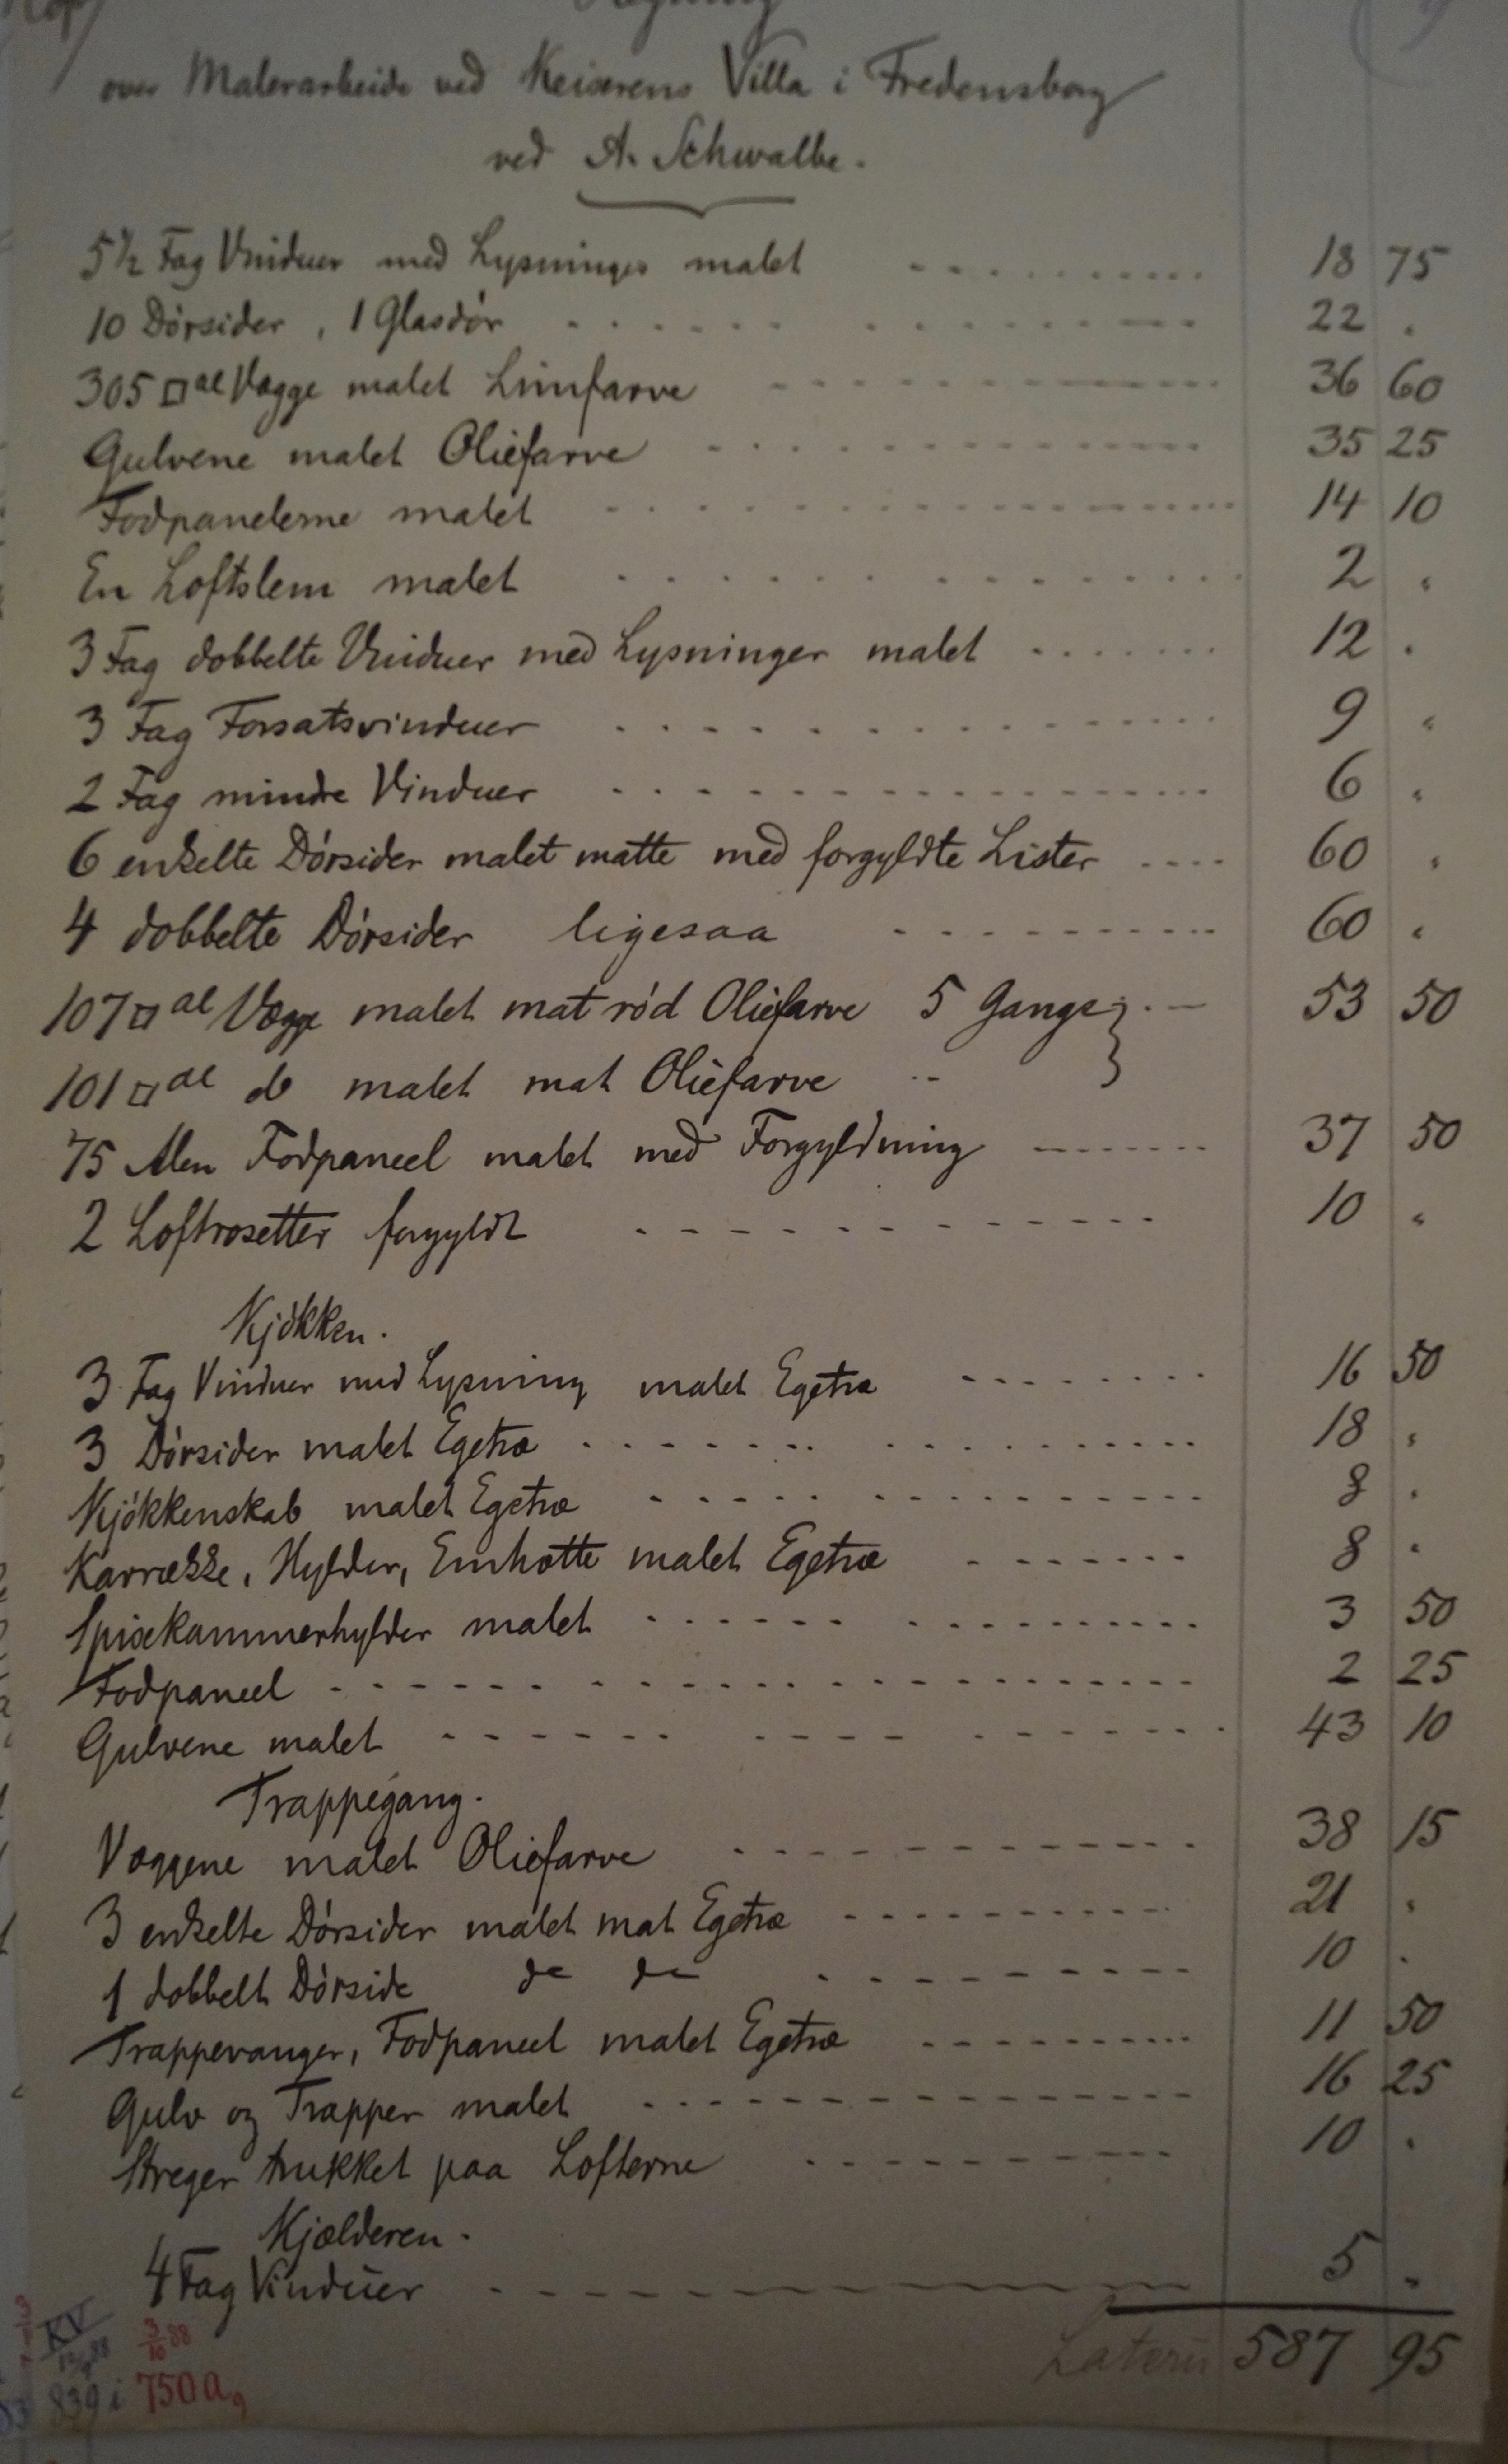 Regning
over Malerarbeide ved Keiserens Villa i Fredensborg
ved A. Schwalbe.
5½ Fag Vinduer med Lysninger malet 18 75
10 Dörsider, 1 Glasdör 22 "
305 □ al Vægge malet Limfarve 36 60
Gulvene malet Oliefarve 35 25
Fodpanelerne malet 14 10
En Loftslem malet 2 "
3 Fag dobbelte Vinduer med Lysninger malet 12 "
3 Fag Forsatsvinduer 9 "
2 Fag mindre Vinduer 6 "
6 enkelte Dörsider malet matte med forgyldte Lister 60 "
4 dobbelte Dörsider ligesaa 60 "
107 □ al Vægge malet mat röd Oliefarve 5 Gange 53 50
101 □ al do malet mat Oliefarve "
75 Alen Fodpaneel malet med Forgyldning 37 50
2 Loftrosetter forgyldt 10 "
Kjökken.
3 Fag Vinduer med Lysning malet Egetræ 16 50
3 Dörsider malet Egetræ 18 "
Kjökkenskab malet Egetræ 8 "
Karrække, Hylder, Emhætte malet Egetræ 8 "
Spisekammerhylder malet 3 50
Fodpaneel 2 25
Gulvene malet 43 10
Trappegang.
Væggene malet Oliefarve 38 15
3 enkelte Dörsider malet mat Egetræ 21 "
1 dobbelt Dörside do do 10 "
Trappevanger, Fodpaneel malet Egetræ 11 50
Gulv og Trapper malet 16 25
Streger trukket paa Lofterne 10 "
Kjælderen.
4 Fag Vinduer 5 "
Lateris 587 95
KV 3/10 88
839 i 750 a